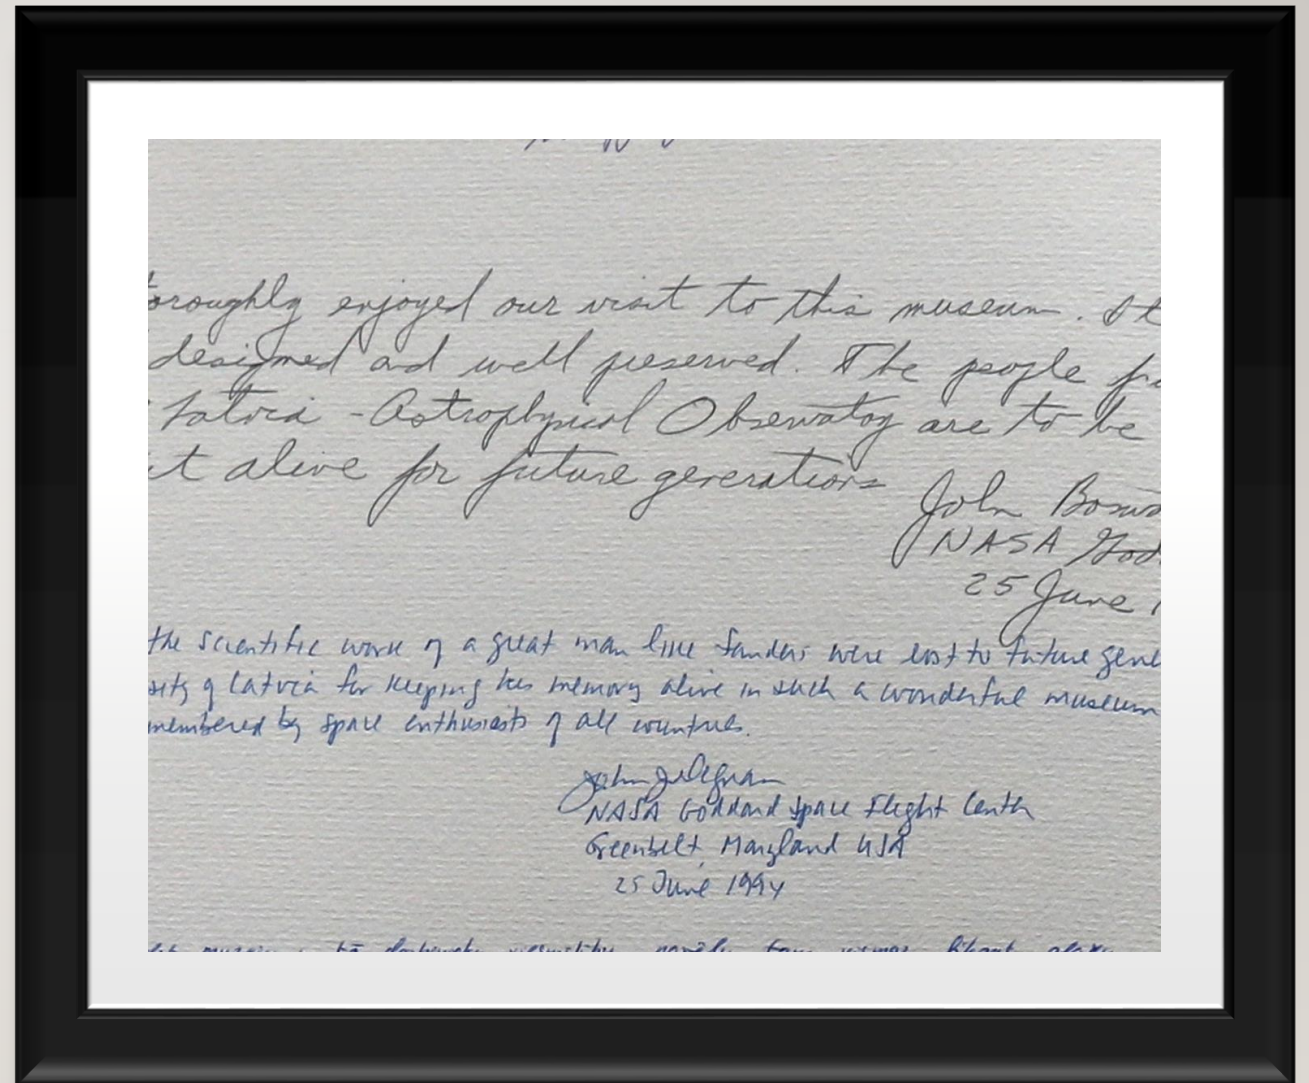 oroughly enjoyed our visit to this museum. It
designed and well preserved. The people fr
Latvia - Astrophysical Observatoy are to be
it alive for future generations
John Bosw
NASA God
25 June 1
the scientific work of a great man like Sanders were lost to future gene
sity of Latvia for keeping his memory alive in such a wonderful museum
membered by space enthusiasts of all countries.
John J. Degnan
NASA Goddard Space Flight Center
Greenbelt, Maryland USA
25 June 1994